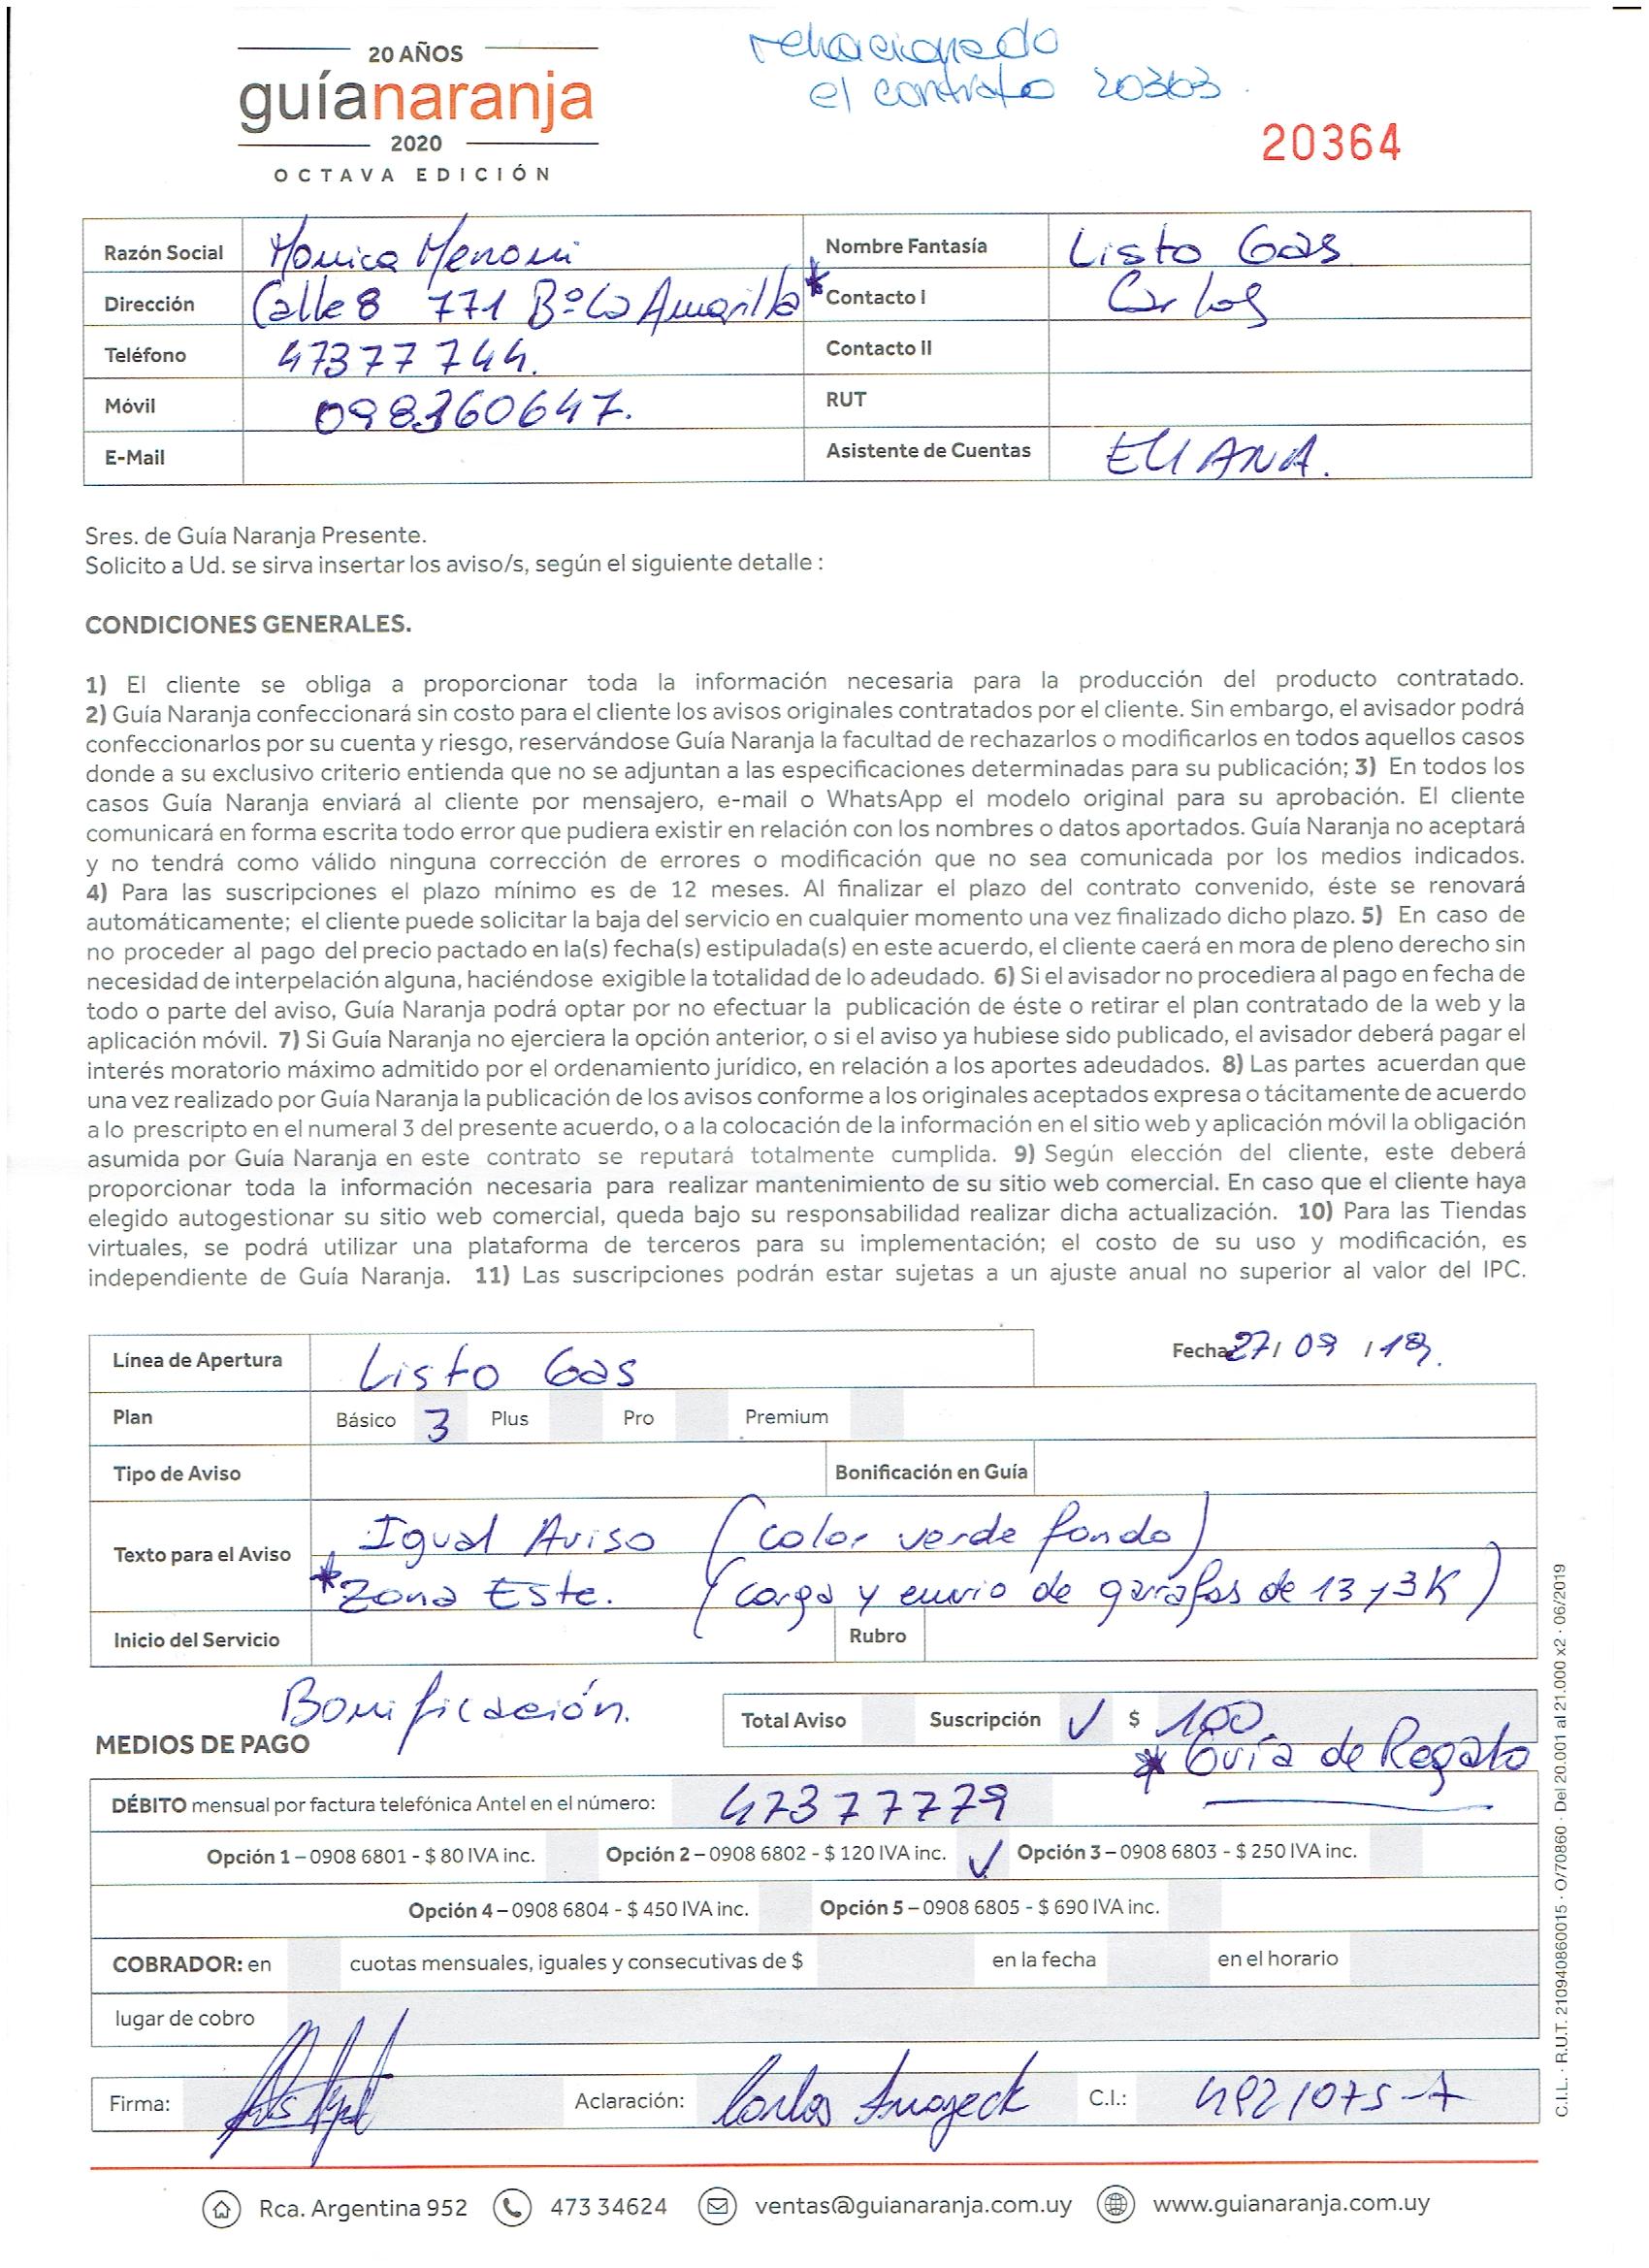 rehacionado
el contrato 20363.
20 AÑOS
guíanaranja
2020
OCTAVA EDICIÓN
20364
Razón Social Monica Menoni Nombre Fantasía Listo Gas
Dirección Calle 8 771 Bº La Amarilla * Contacto I Carlos
Teléfono 47377744. Contacto II
Móvil 098360647. RUT
E-Mail Asistente de Cuentas ELIANA.
Sres. de Guía Naranja Presente.
Solicito a Ud. se sirva insertar los aviso/s, según el siguiente detalle :
CONDICIONES GENERALES.
1) El cliente se obliga a proporcionar toda la información necesaria para la producción del producto contratado.
2) Guía Naranja confeccionará sin costo para el cliente los avisos originales contratados por el cliente. Sin embargo, el avisador podrá
confeccionarlos por su cuenta y riesgo, reservándose Guía Naranja la facultad de rechazarlos o modificarlos en todos aquellos casos
donde a su exclusivo criterio entienda que no se adjuntan a las especificaciones determinadas para su publicación; 3) En todos los
casos Guía Naranja enviará al cliente por mensajero, e-mail o WhatsApp el modelo original para su aprobación. El cliente
comunicará en forma escrita todo error que pudiera existir en relación con los nombres o datos aportados. Guía Naranja no aceptará
y no tendrá como válido ninguna corrección de errores o modificación que no sea comunicada por los medios indicados.
4) Para las suscripciones el plazo mínimo es de 12 meses. Al finalizar el plazo del contrato convenido, éste se renovará
automáticamente; el cliente puede solicitar la baja del servicio en cualquier momento una vez finalizado dicho plazo. 5) En caso de
no proceder al pago del precio pactado en la(s) fecha(s) estipulada(s) en este acuerdo, el cliente caerá en mora de pleno derecho sin
necesidad de interpelación alguna, haciéndose exigible la totalidad de lo adeudado. 6) Si el avisador no procediera al pago en fecha de
todo o parte del aviso, Guía Naranja podrá optar por no efectuar la publicación de éste o retirar el plan contratado de la web y la
aplicación móvil. 7) Si Guía Naranja no ejerciera la opción anterior, o si el aviso ya hubiese sido publicado, el avisador deberá pagar el
interés moratorio máximo admitido por el ordenamiento jurídico, en relación a los aportes adeudados. 8) Las partes acuerdan que
una vez realizado por Guía Naranja la publicación de los avisos conforme a los originales aceptados expresa o tácitamente de acuerdo
a lo prescripto en el numeral 3 del presente acuerdo, o a la colocación de la información en el sitio web y aplicación móvil la obligación
asumida por Guía Naranja en este contrato se reputará totalmente cumplida. 9) Según elección del cliente, este deberá
proporcionar toda la información necesaria para realizar mantenimiento de su sitio web comercial. En caso que el cliente haya
elegido autogestionar su sitio web comercial, queda bajo su responsabilidad realizar dicha actualización. 10) Para las Tiendas
virtuales, se podrá utilizar una plataforma de terceros para su implementación; el costo de su uso y modificación, es
independiente de Guía Naranja. 11) Las suscripciones podrán estar sujetas a un ajuste anual no superior al valor del IPC.
Línea de Apertura Listo Gas Fecha 27/ 09 /19.
Plan Básico 3 Plus Pro Premium
Tipo de Aviso Bonificación en Guía
Texto para el Aviso Igual Aviso (color verde fondo)
* Zona Este. (carga y envio de garrafas de 13 y 3K)
Inicio del Servicio Rubro
Bonificación.
Total Aviso Suscripción ✓ $ 100
MEDIOS DE PAGO * Guía de Regalo
DÉBITO mensual por factura telefónica Antel en el número: 47377779
Opción 1 – 0908 6801 - $ 80 IVA inc. Opción 2 – 0908 6802 - $ 120 IVA inc. ✓ Opción 3 – 0908 6803 - $ 250 IVA inc.
Opción 4 – 0908 6804 - $ 450 IVA inc. Opción 5 – 0908 6805 - $ 690 IVA inc.
COBRADOR: en cuotas mensuales, iguales y consecutivas de $ en la fecha en el horario
lugar de cobro
Firma: Aclaración: Carlos C.I.: 4921075-7
Rca. Argentina 952 473 34624 ventas@guianaranja.com.uy www.guianaranja.com.uy
C.I.L. · R.U.T. 210940860015 · O/70860 · Del 20.001 al 21.000 x2 · 06/2019